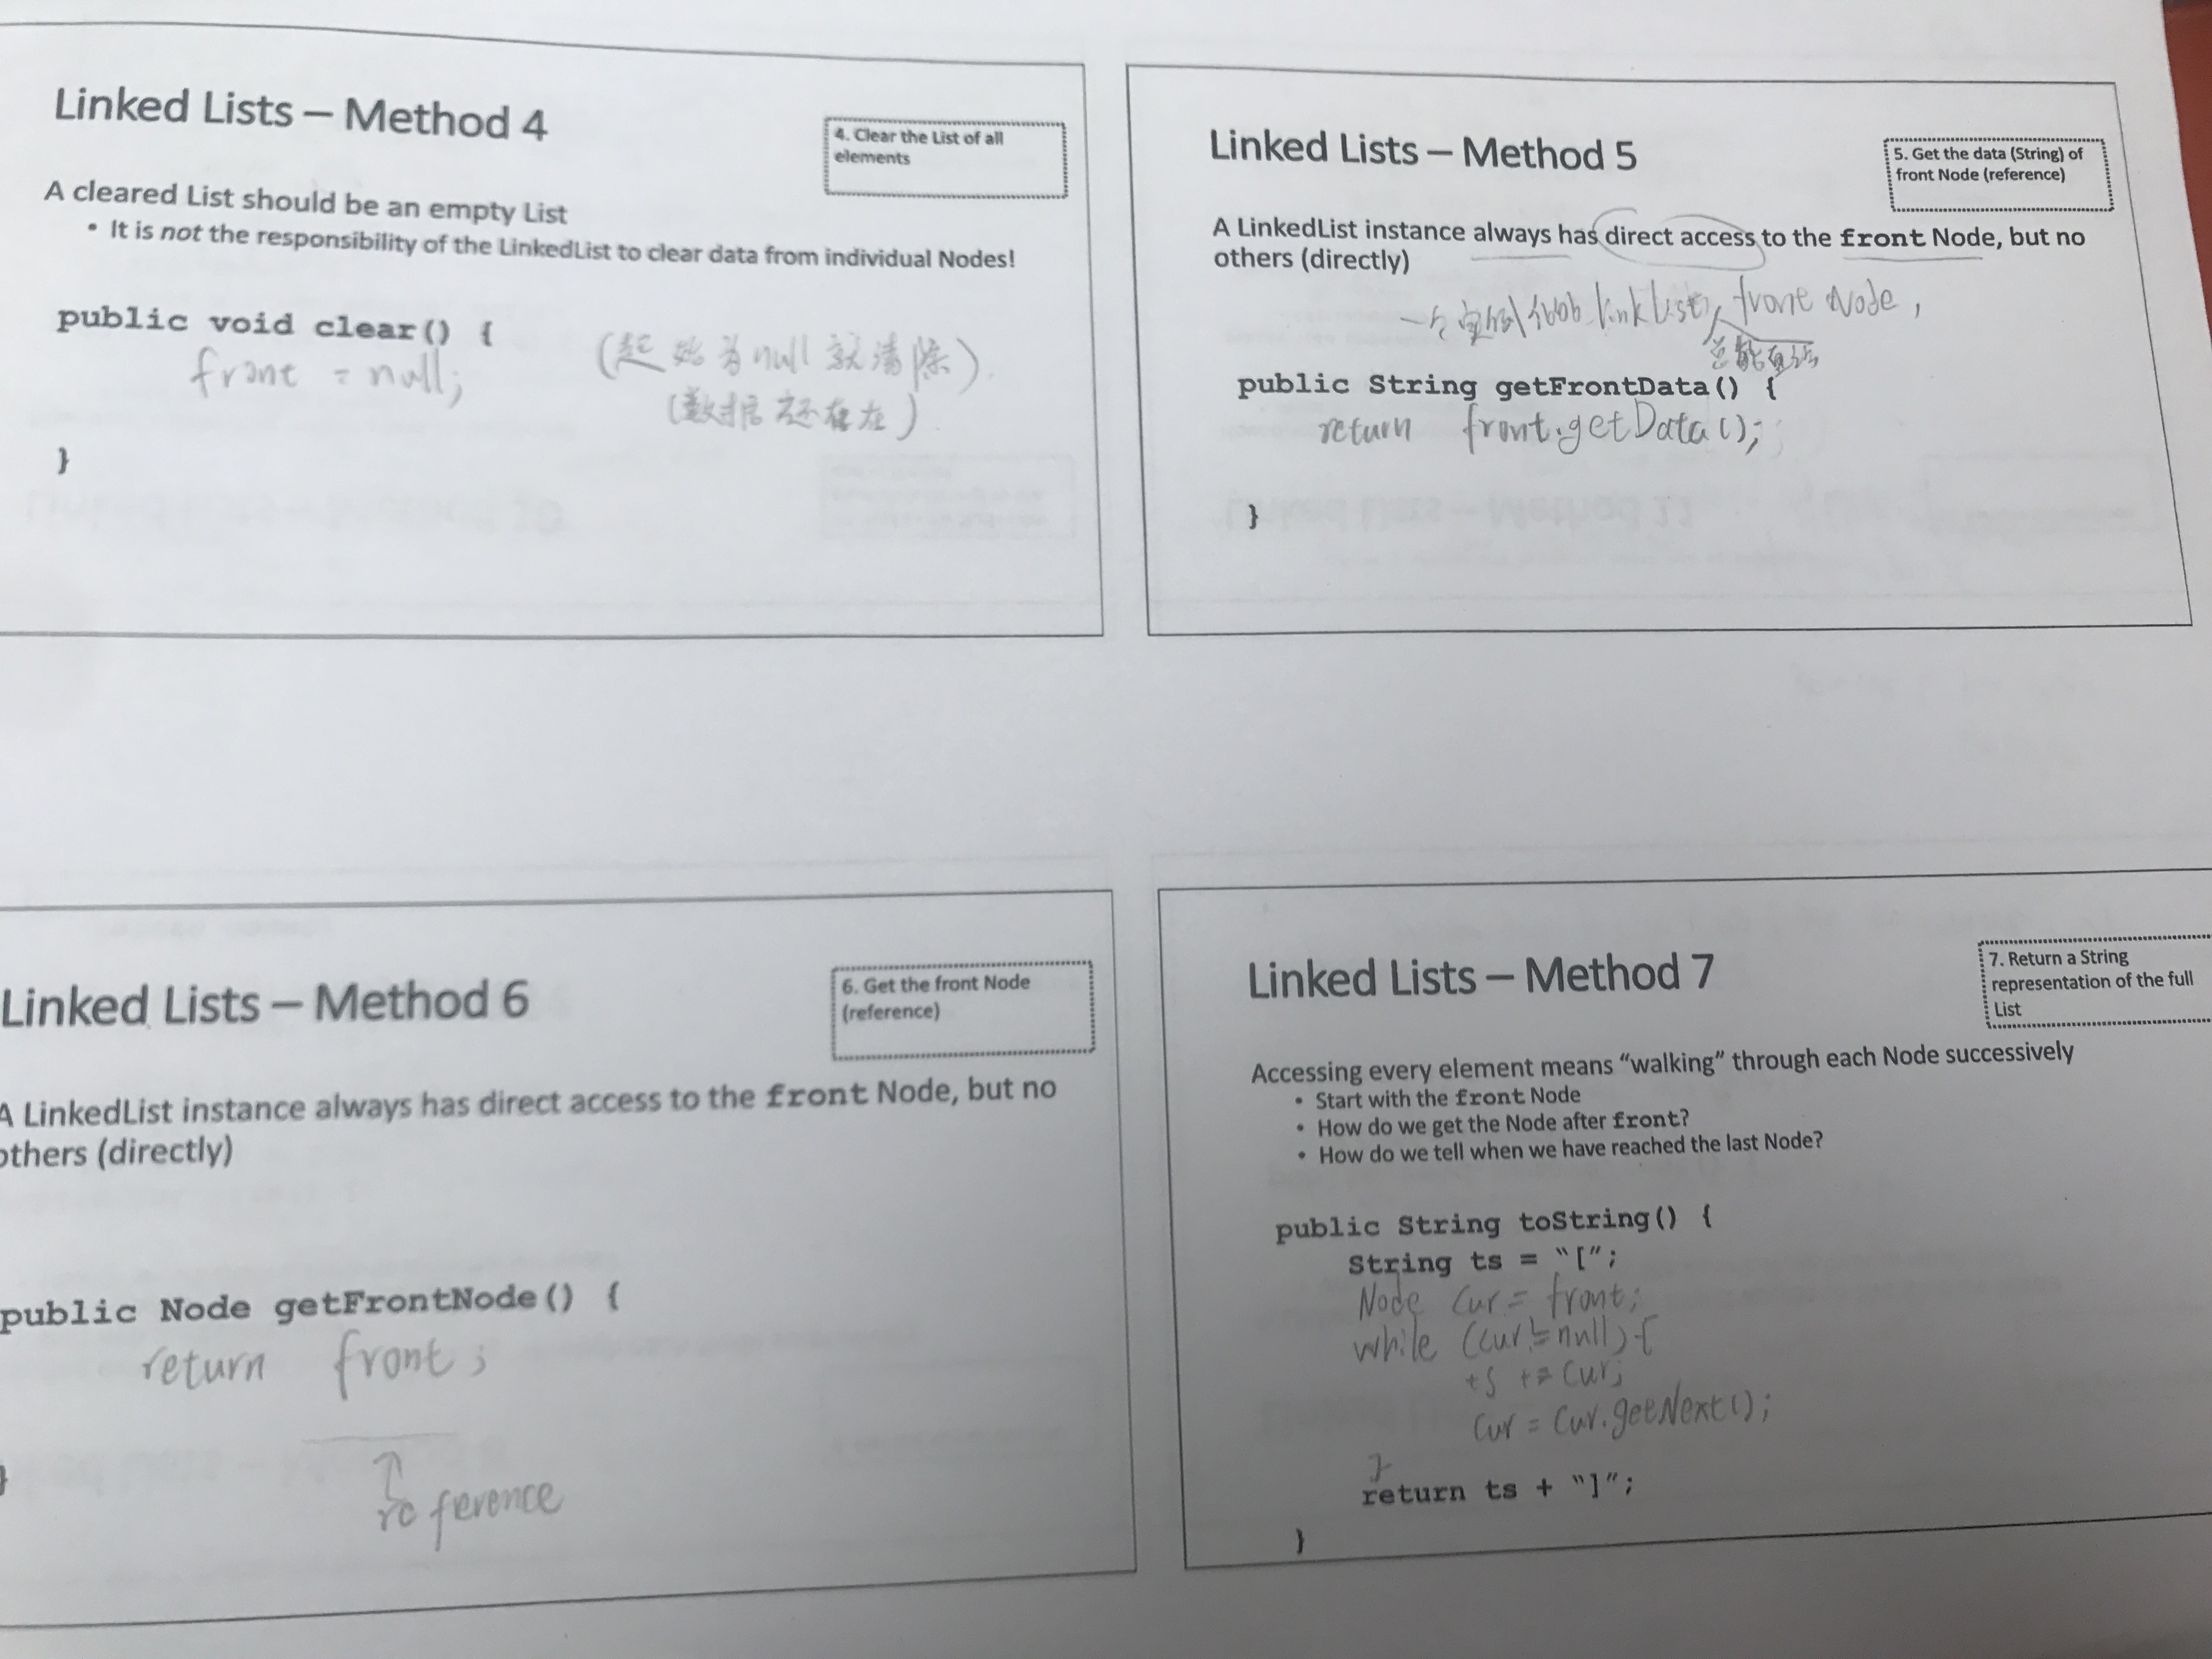 Linked Lists – Method 4
4. Clear the List of all
elements
A cleared List should be an empty List
• It is not the responsibility of the LinkedList to clear data from individual Nodes!
public void clear() {
front = null;
null
}
Linked Lists – Method 5
5. Get the data (String) of
front Node (reference)
A LinkedList instance always has direct access to the front Node, but no
others (directly)
link list front Node,
public String getFrontData() {
return front.getData();
}
Linked Lists – Method 6
6. Get the front Node
(reference)
A LinkedList instance always has direct access to the front Node, but no
others (directly)
public Node getFrontNode() {
return front;
reference
}
Linked Lists – Method 7
7. Return a String
representation of the full
List
Accessing every element means "walking" through each Node successively
• Start with the front Node
• How do we get the Node after front?
• How do we tell when we have reached the last Node?
public String toString() {
String ts = "[";
Node cur = front;
while (cur != null) {
ts += cur;
cur = cur.getNext();
}
return ts + "]";
}